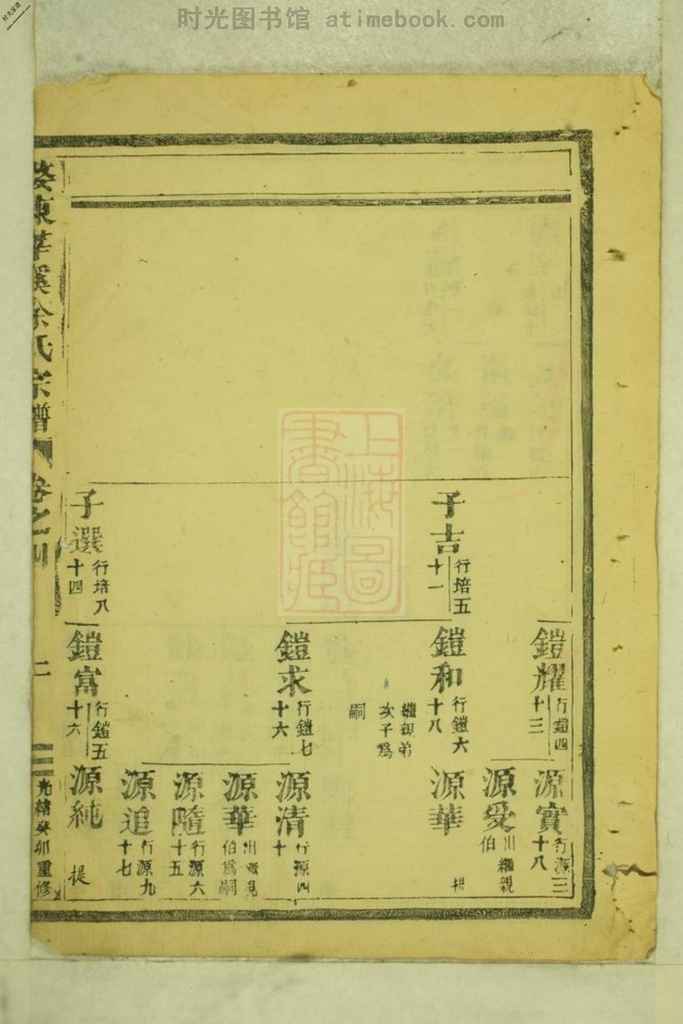 时光图书馆 atimebook.com
上海圖
書館藏
鎧耀
行鎧四
十三
源實
行源三
十八
源受
出繼親
伯
子吉
行培五
十一
鎧和
行鎧六
十八
繼御弟
次子爲
嗣
源華
提
鎧求
行鎧七
十六
源清
行源四
十
源華
出繼親
伯爲嗣
源隨
行源六
十五
源追
行源九
十七
子選
行培八
十四
鎧富
行鎧五
十六
源純
提
婺東華溪余氏宗譜
卷之四
二
光緒癸卯重修